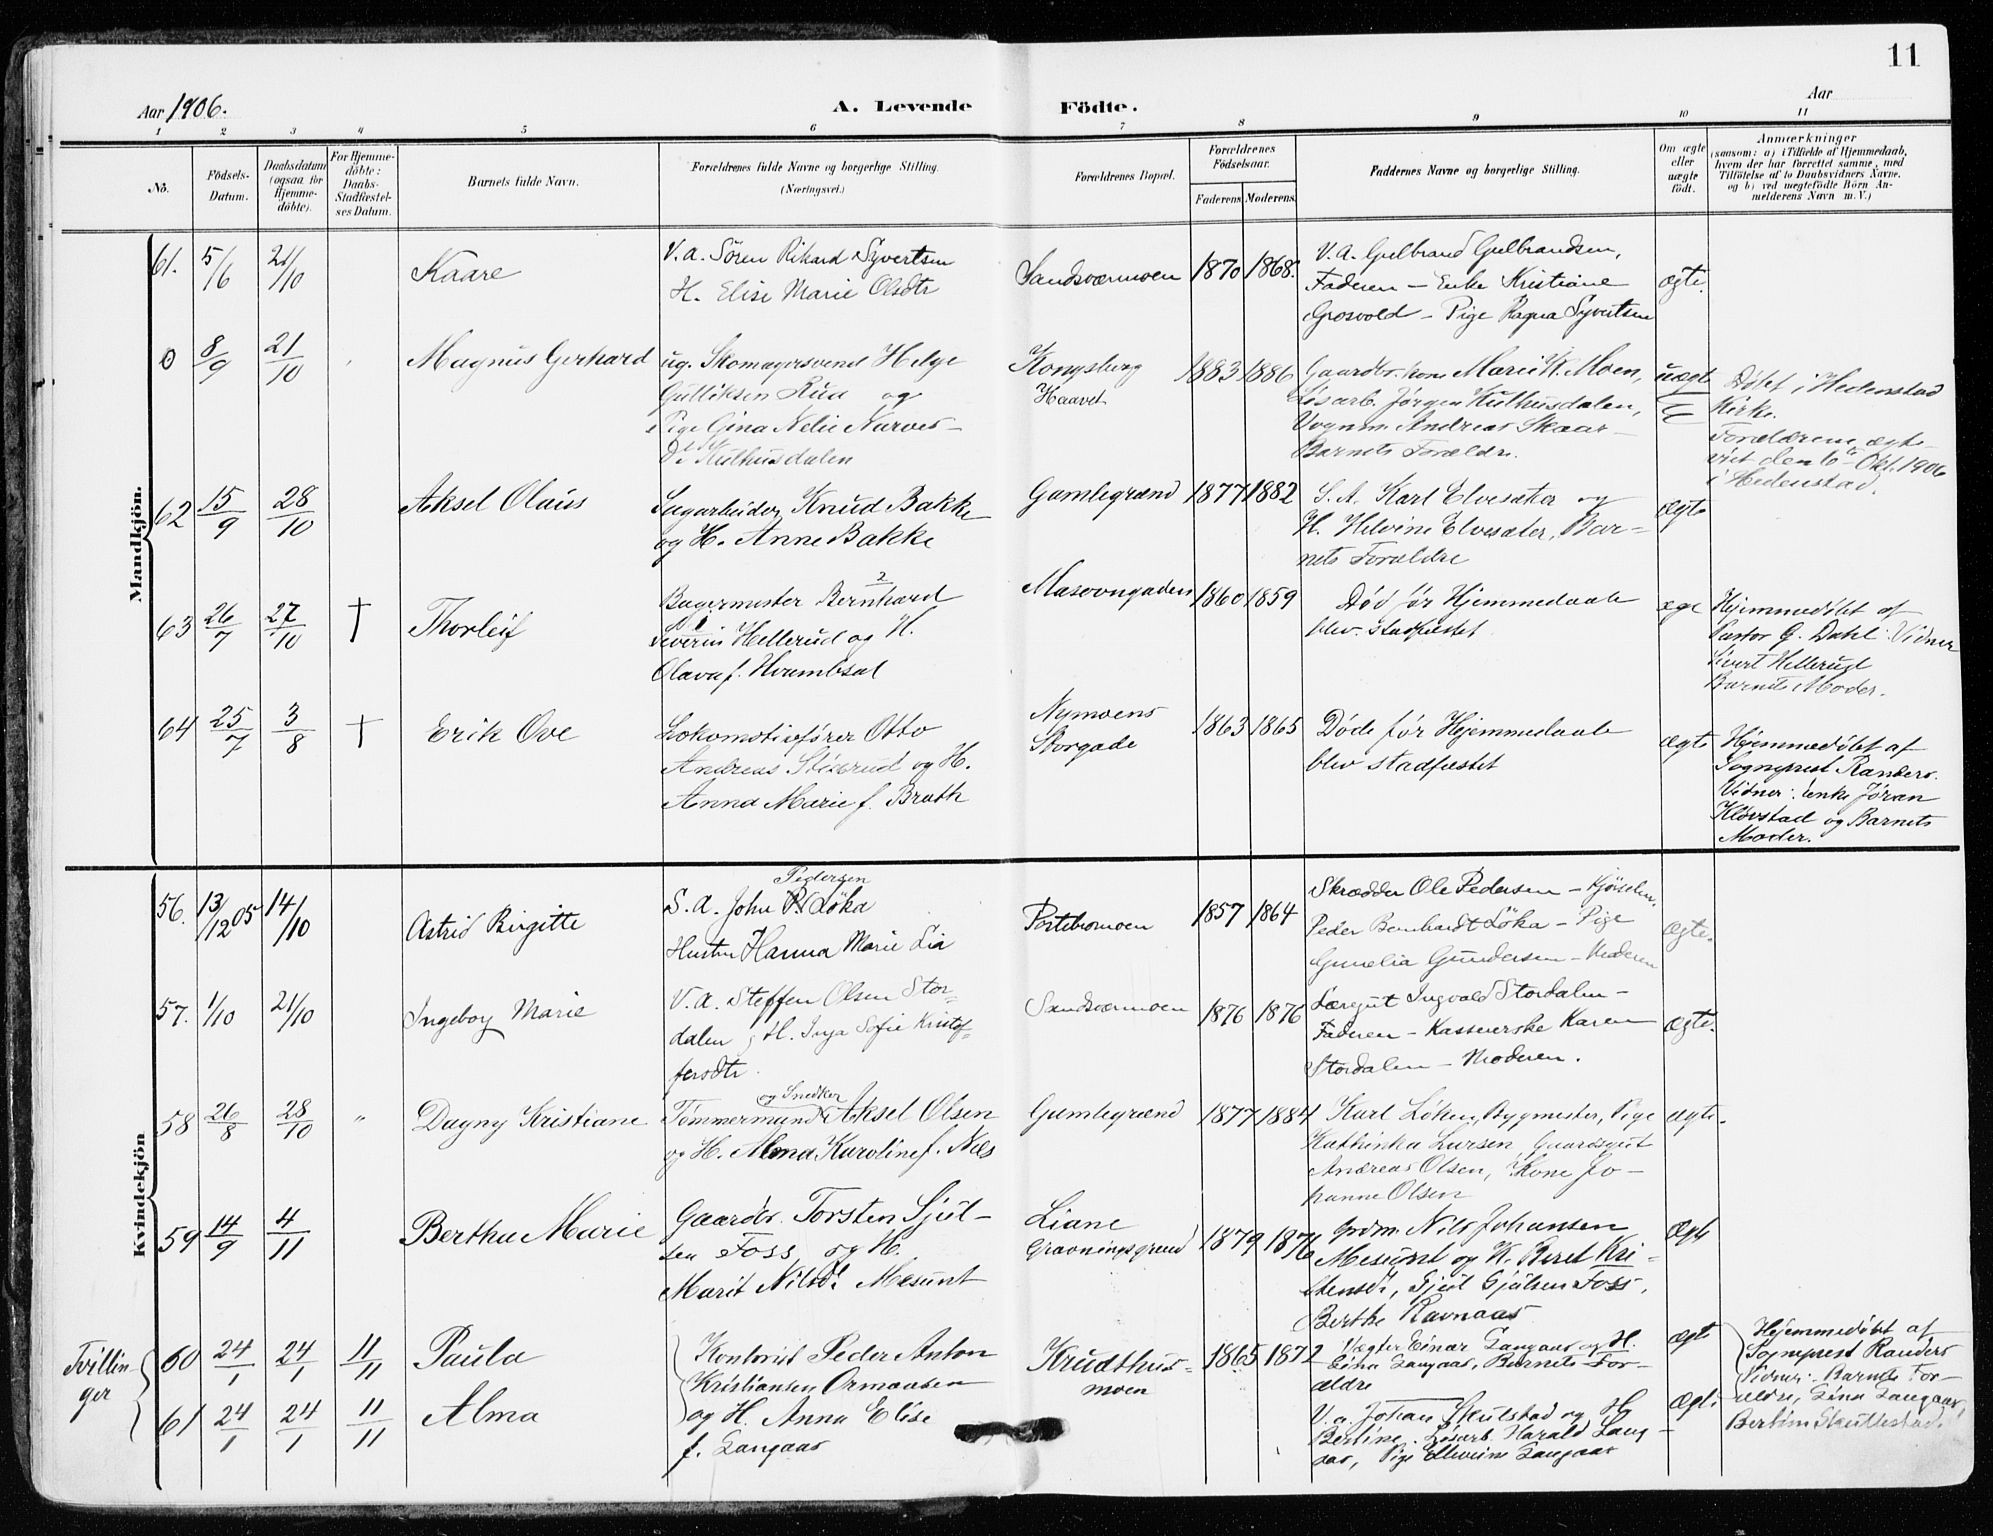 11
Aar 1906.
A. Levende Födte.
Aar
1 2 3 4 5 6 7 8 9 10 11
No.
Födsels-Datum.
Daabsdatum (ogsaa for Hjemme-döbte).
For Hjemme-döbte: Daabs-Stadfæstel-ses Datum.
Barnets fulde Navn.
Forældrenes fulde Navne og borgerlige Stilling.
(Næringsvei.)
Forældrenes Bopæl.
Forældrenes Födselsaar.
Faderens. Moderens.
Faddernes Navne og borgerlige Stilling.
Om ægte eller uægte födt.
Anmærkninger
(saasom: a) i Tilfælde af Hjemmedaab,
hvem der har forrettet samme, med
Tilföielse af to Daabsvidners Navne,
og b) ved uægtefödte Börn An-
melderens Navn m. V.)
Mandkjön.
61. 5/6 21/10 Kaare
V.a. Sören Rikard Syvertsen
H. Elise Marie Olsdtr
Sandsværmoen 1870 1868.
V.A. Gulbrand Gulbrandsen,
Faderen – Enke Kristiane
Grosvold – Pige Ragna Syvertsen
ægte.
0 8/9 21/10 Magnus Gerhard
ug. Skomagersvend Helge
Gulliksen Rud og
Pige Gina Nelie Narves-
Kulhusdalen
Kongsberg
Haavet
1883 1886
Gaardbr. kone Marie K. Moen,
Løsarb. Jørgen Kulhusdalen,
Vognm. Andreas Skaar
Barnets Forældre.
uægte
Døbt i Hedenstad
Kirke.
Forældrene ægte-
viet den 6te Okt. 1906
i Hedenstad.
62 15/9 28/10 Aksel Olaus
Sagarbeider Knud Bakke
og H. Anne Bakke
Gamlegrænd 1877 1882
S.A. Karl Elvesæter og
H. Helvine Elvesæter, Bar-
nets Forældre
ægte
63 26/7 27/10 † Thorleif
Bagermester Bernhard 2
Severin 1 Hellerud og H.
Olava f. Hvambsal
Masovngaden 1860 1859
Død før Hjemmedaab
blev stadfæstet
æge
Hjemmedøbt af
Pastor G. Dahl. Vidner
Sivert Hellerud
Barnets Moder.
64 25/7 3/8 † Erik Ove
Lokomotivfører Otto
Andreas Stixrud og H.
Anna Marie f. Brath
Nymoens
Storgade
1863 1865
Døde før Hjemmedaab
blev stadfæstet
ægte
Hjemmedøbt af
Sogneprest Randers.
Vidner: enke Jøran
Kløvstad og Barnets
Moder.
Kvindekjön
56. 13/12 05 14/10 Astrid Birgitte
Pedersen
S.a. John P. Löka
Hustru Hanna Marie Lia
Portebromoen 1857 1864
Skrædder Ole Pedersen –
Peder Bernhardt Löka – Pige
Gunelia Gundersen – Moderen
ægte.
57. 1/10 21/10 Ingeborg Marie
V.a. Steffen Olsen Stor-
dalen, H. Inga Sofie Kristof-
fersdtr.
Sandsværmoen 1876 1876
Læregut Ingvald Stordalen –
Faderen – Kassererske Karen
Stordalen – Moderen.
ægte.
58 26/8 28/10 " Dagny Kristiane
og Snedker
Tömmermand Aksel Olsen
og H. Alma Karoline f. Næs
Gamlegrænd 1877 1884
Karl Løken, Bygmester, Pige
Kathinka Larsen, Gaardsgut
Andreas Olsen, Kone Jo-
hanne Olsen
ægte.
59 14/9 4/11 Berthe Marie
Gaardbr. Torsten Sjul-
sen Foss, og H.
Marit Nilsd. Mesunt
Liane
Gravningsgrend
1879 1876
Grdm. Nils Johansen
Mesunt og K. Beret Kri-
stensd., Gjul Gjulsen Foss,
Berthe Ravnaas
Ægte
Tvillin-
ger
60 24/1 24/1 11/11 Paula
61 24/1 24/1 11/11 Alma
Kontorist Peder Anton
Kristiansen Ormaasen
og H. Anna Elise
f. Langaas
Krudthus-
moen
1865 1872
Vægter Einar Langaas og H.
Gina Langaas, Barnets For-
ældre
V.a. Johan Skulstad og H
Bertine. Løsarb. Harald Lang-
aas, Pige Ellevine Langaas
ægte
ægte
Hjemmedøbt af
Sogneprest Randers
Vidner: Barnets For-
ældre, Gina Langaas,